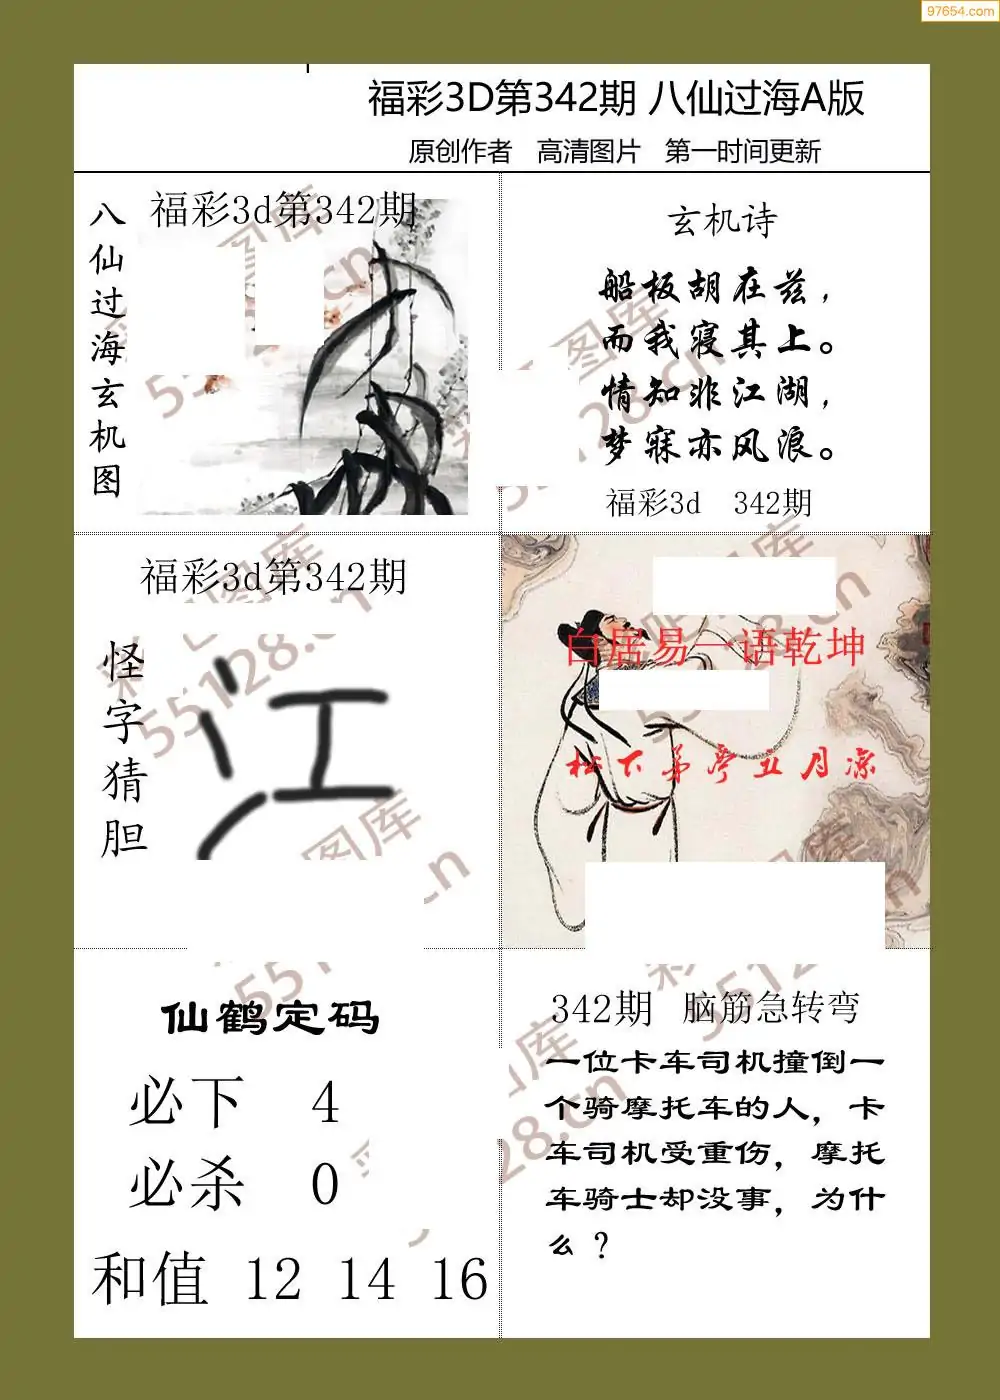 97654.com
福彩3D第342期 八仙过海A版
原创作者 高清图片 第一时间更新
福彩3d第342期
八仙过海玄机图
玄机诗
船板胡在兹，
而我寝其上。
情知非江湖，
梦寐亦风浪。
福彩3d 342期
福彩3d第342期
怪字猜胆
江
白居易一语乾坤
松下茅亭五月凉
仙鹤定码
必下 4
必杀 0
和值 12 14 16
342期 脑筋急转弯
一位卡车司机撞倒一
个骑摩托车的人，卡
车司机受重伤，摩托
车骑士却没事，为什
么？